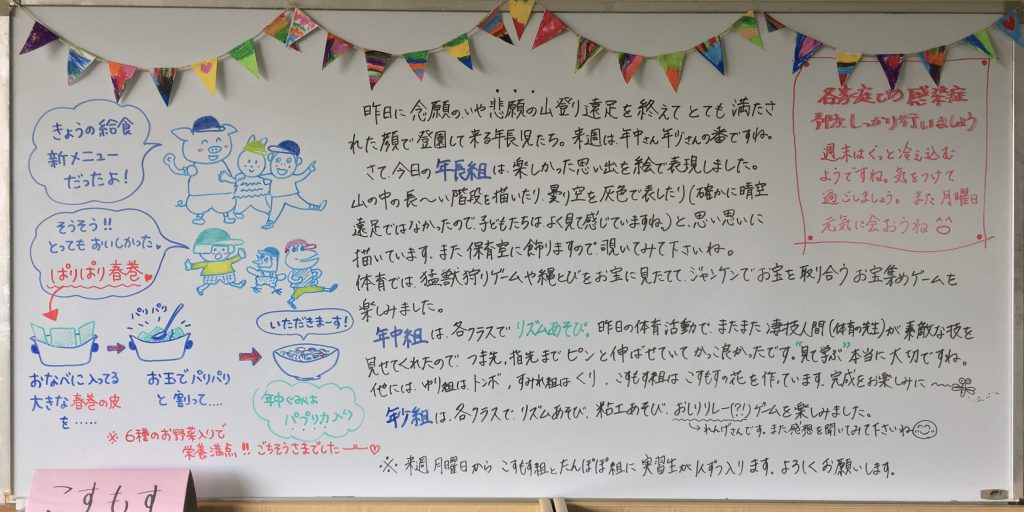 きょうの給食
新メニュー
だったよ！
そうそう!!
とっても おいしかった
ぱりぱり春巻
おなべに入ってる
大きな春巻の皮
を……
パリパリ
お玉でパリパリ
と割って….
いただきまーす！
年中ぐみは
パプリカ入り
※6種のお野菜入りで
栄養満点!! ごちそうさまでした
こすもす
昨日に念願の、いや悲願の山登り遠足を終えてとても満たさ
れた顔で登園して来る年長児たち。来週は年中さん年少さんの番ですね。
さて、今日の年長組は、楽しかった思い出を絵で表現しました。
山の中の長〜い階段を描いたり、曇り空を灰色で表したり(確かに晴空
遠足ではなかったので、子どもたちは、よく見て感じていますね。)と、思い思いに
描いています。また保育室に飾りますので、覗いてみて下さいね。
体育では、猛獣狩りゲームや縄とびをお宝に見たてて、ジャンケンでお宝を取り合うお宝集めゲームを
楽しみました。
年中組は、各クラスでリズムあそび。昨日の体育活動で、またまた凄技人間(体育の先生)が素敵な技を
見せてくれたので、つま先、指先までピンと伸ばせていてかっこ良かったです。"見て学ぶ"本当に大切ですね。
他には、ゆり組はトンボ、すみれ組はくり、こすもす組はこすもすの花を作っています。完成をお楽しみに〜
年少組は、各クラスで、リズムあそび、粘土あそび、おしりリレー(?!)ゲームを楽しみました。
れんげさんです。また感想を聞いてみて下さいね
※来週月曜日からこすもす組とたんぽぽ組に実習生が1人ずつ入ります。よろしくお願いします。
各家庭での感染症
予防をしっかり行いましょう
週末はぐっと冷え込む
ようですね。気をつけて
過ごしましょう。また月曜日
元気に会おうね